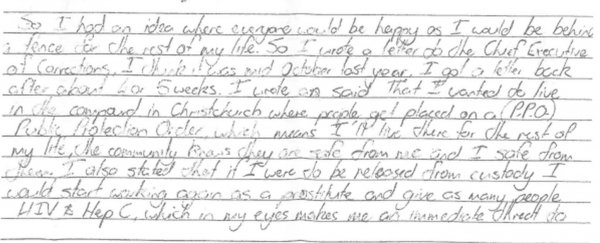 So I had an idea where everyone would be happy as I would be behind
a fence for the rest of my life. So I wrote a letter to the Chief Executive
of Corrections, I think it was mid October last year, I got a letter back
after about 4 or 5 weeks. I wrote an said that I wanted to live
in the compound in Christchurch where people get placed on a (P.P.O)
Public Protection Order, which means I'll live there for the rest of
my life, the community knows they are safe from me and I safe from
them. I also stated that if I were to be released from custody I
would start working again as a prostitute and give as many people
HIV & Hep C, which in my eyes makes me an immediate threat to